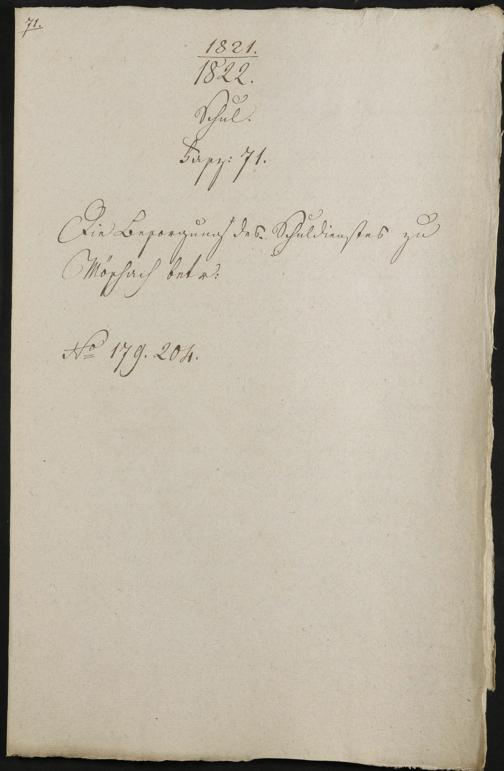 71.
1821.
1822.
Schul.
Fasz: 71.
Die Besorgung des Schuldienstes zu
betr:
No 179. 204.